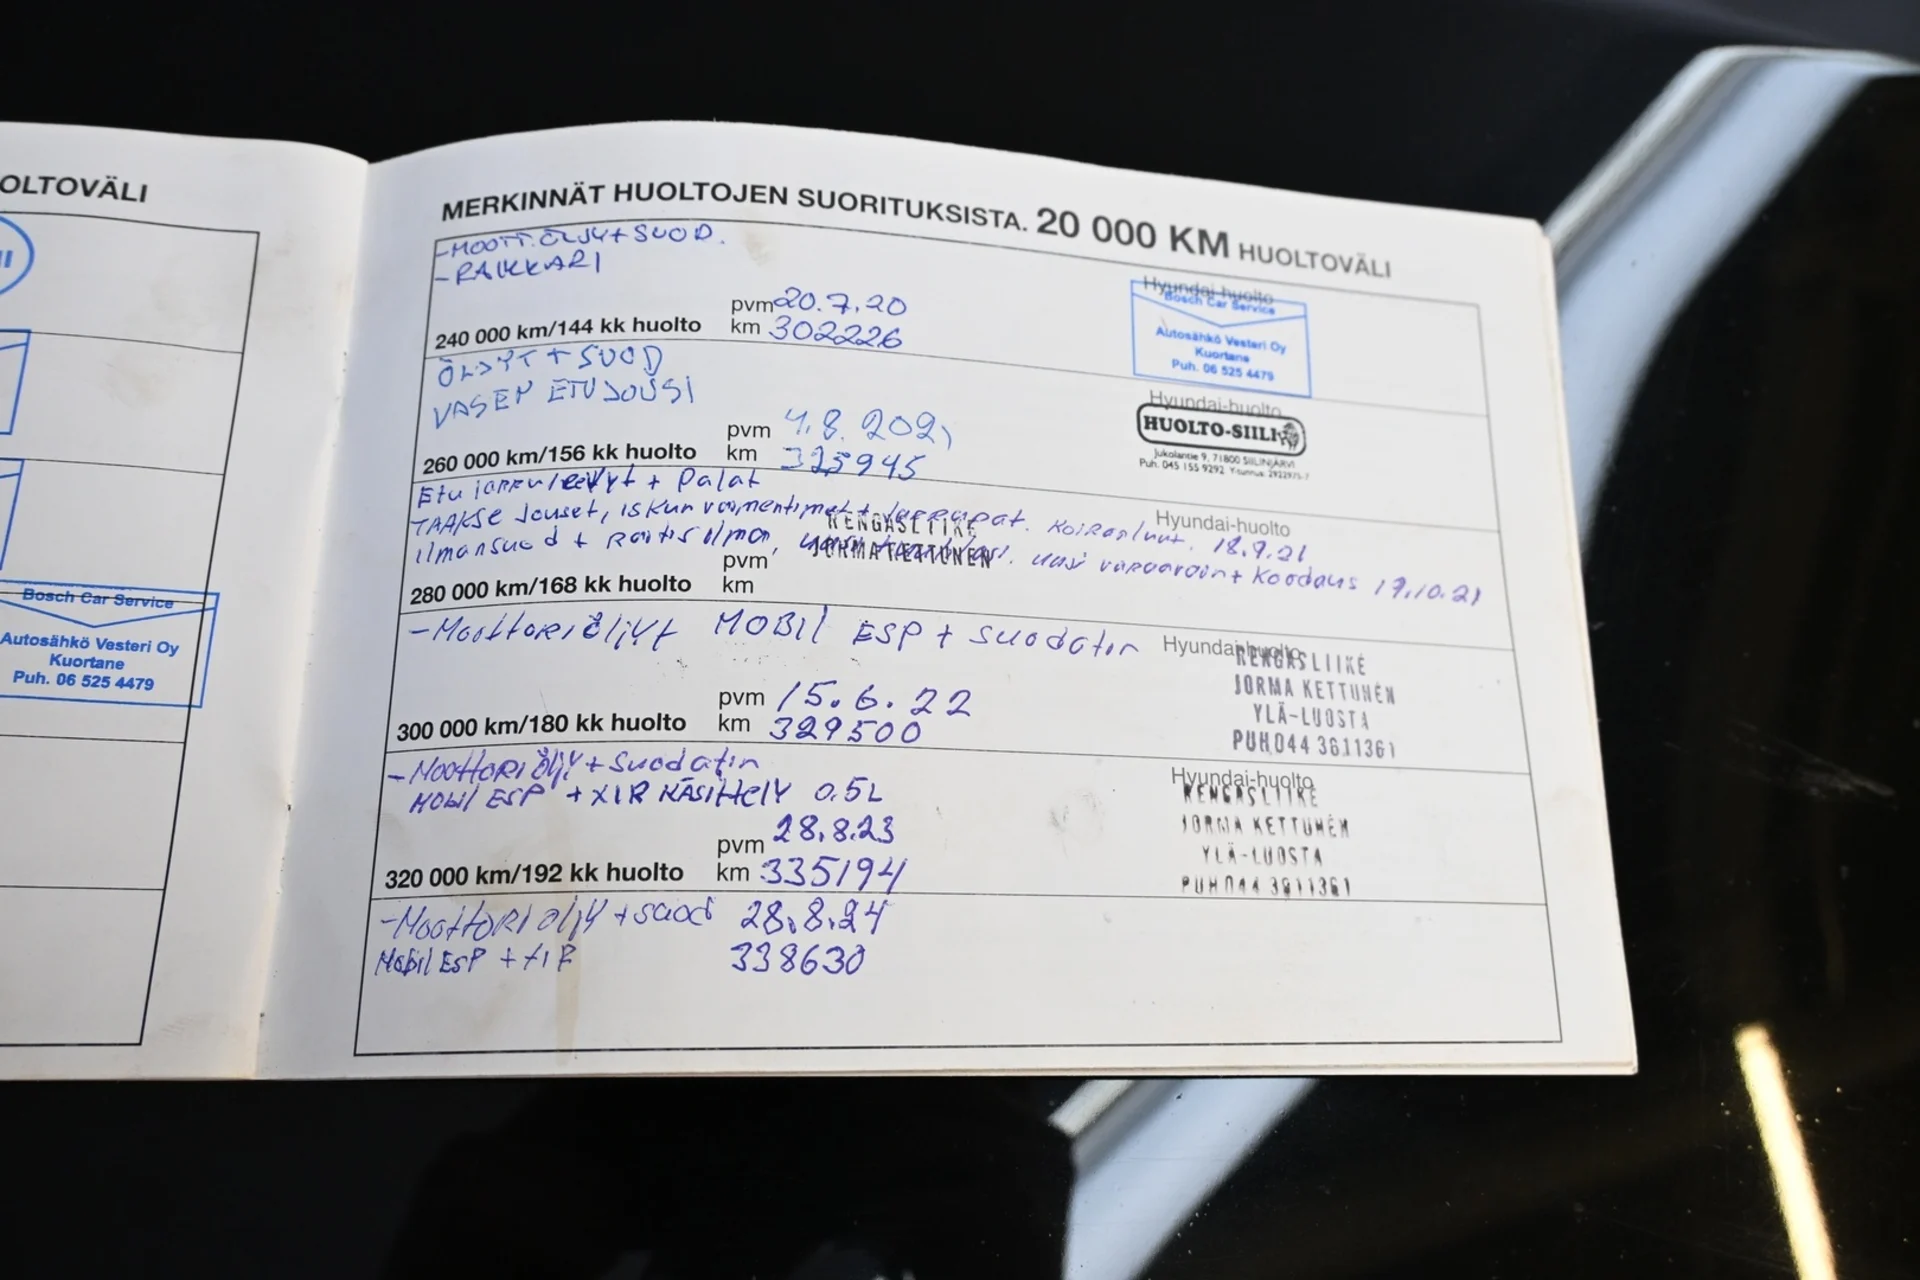 OLTOVÄLI
Bosch Car Service
Autosähkö Vesteri Oy
Kuortane
Puh. 06 525 4479
MERKINNÄT HUOLTOJEN SUORITUKSISTA. 20 000 KM HUOLTOVÄLI
-MOOTT.ÖLJY+SUOD.
-RAIKKARI
pvm 20.7.20
240 000 km/144 kk huolto km 302226
Hyundai-huolto
Bosch Car Service
Autosähkö Vesteri Oy
Kuortane
Puh. 06 525 4479
ÖLJYT + SUOD
VASEN ETUJOUSI
pvm 4.8.2021
260 000 km/156 kk huolto km 325945
Hyundai-huolto
HUOLTO-SIILI
Jukolantie 9, 71800 SIILINJÄRVI
Puh. 045 155 9292 Y-tunnus: 2922975-7
Etu jarrulevyt + Palat
TAAKSE Jouset, iskunvaimentimet + jarrupat. Koiranluut. 18.9.21
ilmansuod + Raitisilman, uusi varaavain + Koodaus 19.10.21
RENGASLIIKE
JORMA KETTUNEN
Hyundai-huolto
pvm
280 000 km/168 kk huolto km
-Moottoriöljyt MOBIL ESP + Suodatin
pvm 15.6.22
300 000 km/180 kk huolto km 329500
Hyundai-huolto
RENGASLIIKE
JORMA KETTUNEN
YLÄ-LUOSTA
PUH 044 3611361
-Moottoriöljy + Suodatin
MOBIL ESP + XIR KÄSITTELY 0.5L
pvm 28.8.23
320 000 km/192 kk huolto km 335194
Hyundai-huolto
RENGASLIIKE
JORMA KETTUNEN
YLÄ-LUOSTA
PUH 044 3611361
-Moottoriöljy + suod 28.8.24
Mobil ESP + XIR 338630